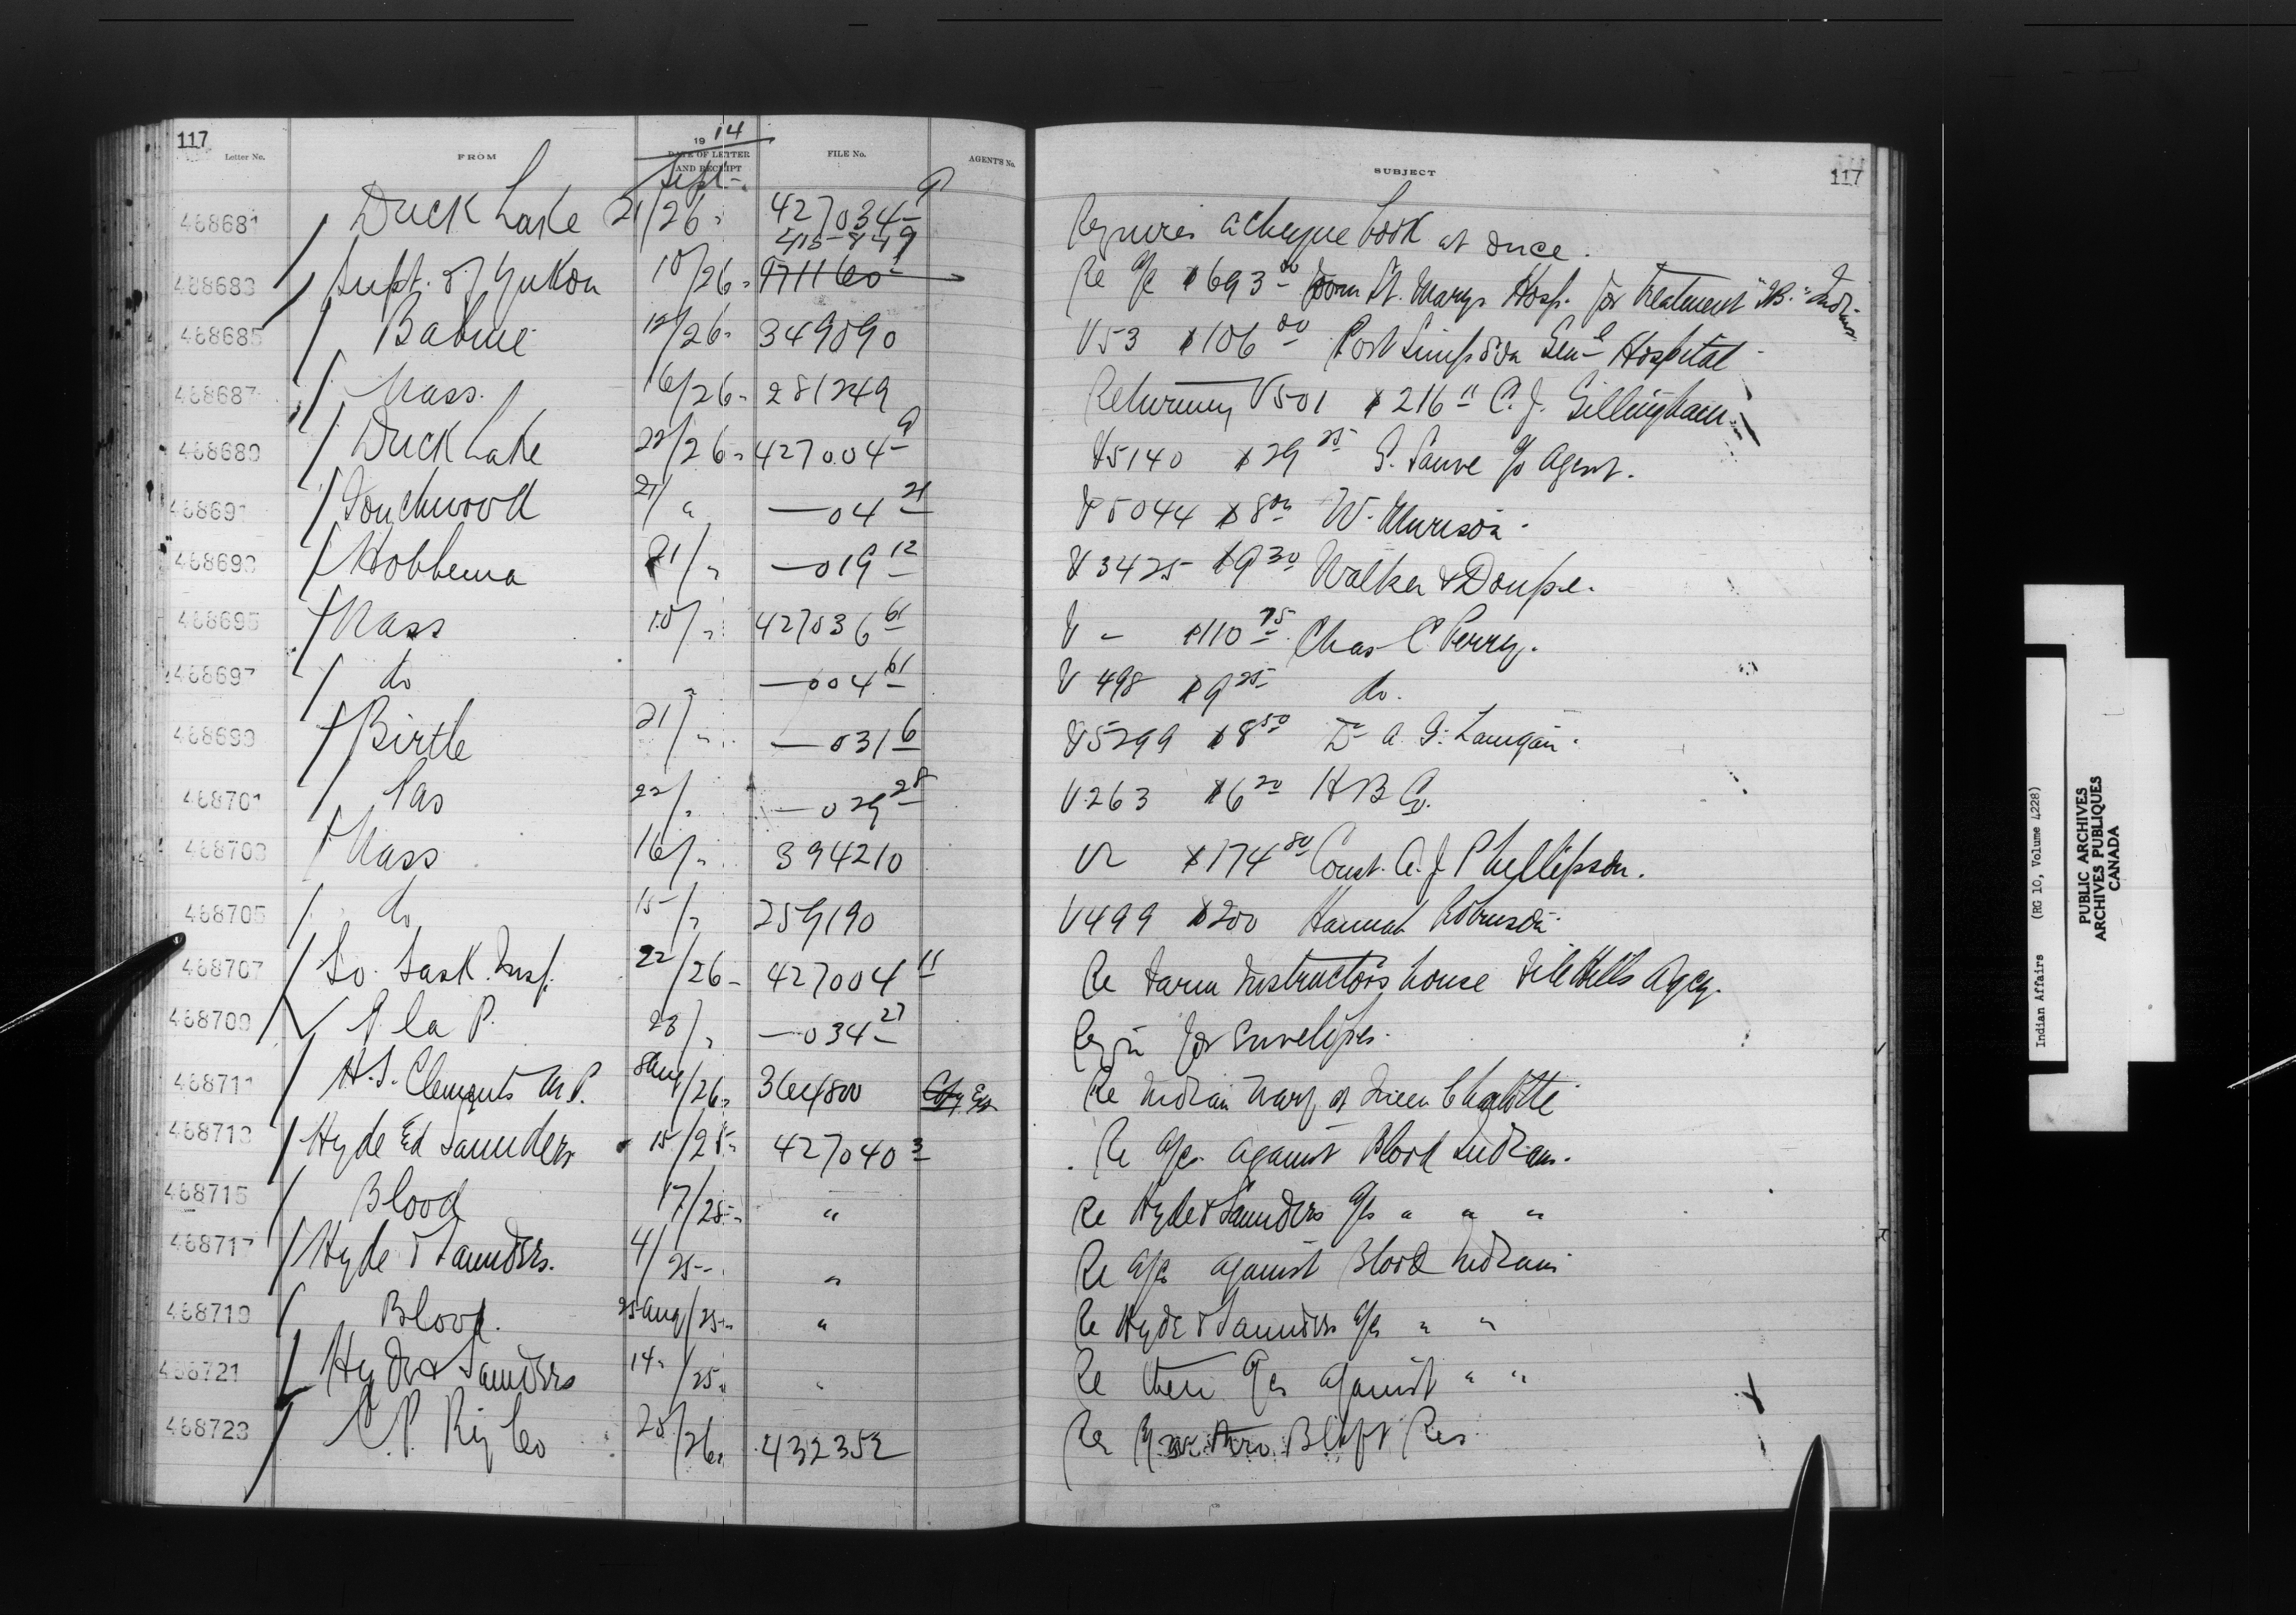 117
19 14
Letter No. FROM DATE OF LETTER AND RECEIPT FILE No. AGENT'S No. SUBJECT 117
Sept-
468681 Duck Lake 21/26 427034 9 Requires a cheque book at once.
415-449
468683 Supt. of Yukon 10/26 471160 Re a/c $693.00 from St. Marys Hosp. for treatment Inds.
468685 Babine 12/26 349090 V53 $106 00 Port Simpson Genl Hospital
468687 Nass. 16/26 281249 Returning V501 $216 11 C. J. Gillingham.
468689 Duck Lake 22/26 427004 9 V5140 $29 25 S. Sauve Agent.
468691 Touchwood 21/ " —04 21 V5044 $8 00 W. Murison.
468693 Hobbema 21/ " —019 12 V3425 $9 30 Walker & Doupe.
468695 Nass 10/ " 427036 61 V - $110 75 Chas C Perry.
468697 do " —004 61 V 498 $9 25 do.
468699 Birtle 21/ " —031 6 V5299 $8 50 Dr A. G. Lanigan.
468701 Pas 22/ " —029 28 V263 $6 20 H B Co.
468703 Nass 16/ " 394210 V $174 80 Const. A. J. Phillipson.
468705 do 15/ " 259190 V499 $200 Hannah Robinson.
468707 So. Sask. Insp. 22/26 427004 11 Re Farm Instructors house File Hills Agcy.
468709 P. la P. 23/ " —034 27 Reqn for Envelopes.
468711 H. S. Clements M.P. 8 Aug/26 364800 Re Indian Queen Charlotte
468713 Hyde Ed Saunders 15/25 427040 3 Re a/cs against Blood Indians.
468715 Blood 17/25 " Re Hyde & Saunders a/cs " " "
468717 Hyde & Saunders. 4/25 " Re a/cs against Blood Indians
468719 Blood. 25 Aug/25 " Re Hyde & Saunders a/cs " "
468721 Hyde & Saunders 14/25 " Re their a/cs against " "
468723 C. P. Ry Co 25/26 432352 Re Bluff Res
Indian Affairs (RG 10, Volume 4228)
PUBLIC ARCHIVES
ARCHIVES PUBLIQUES
CANADA